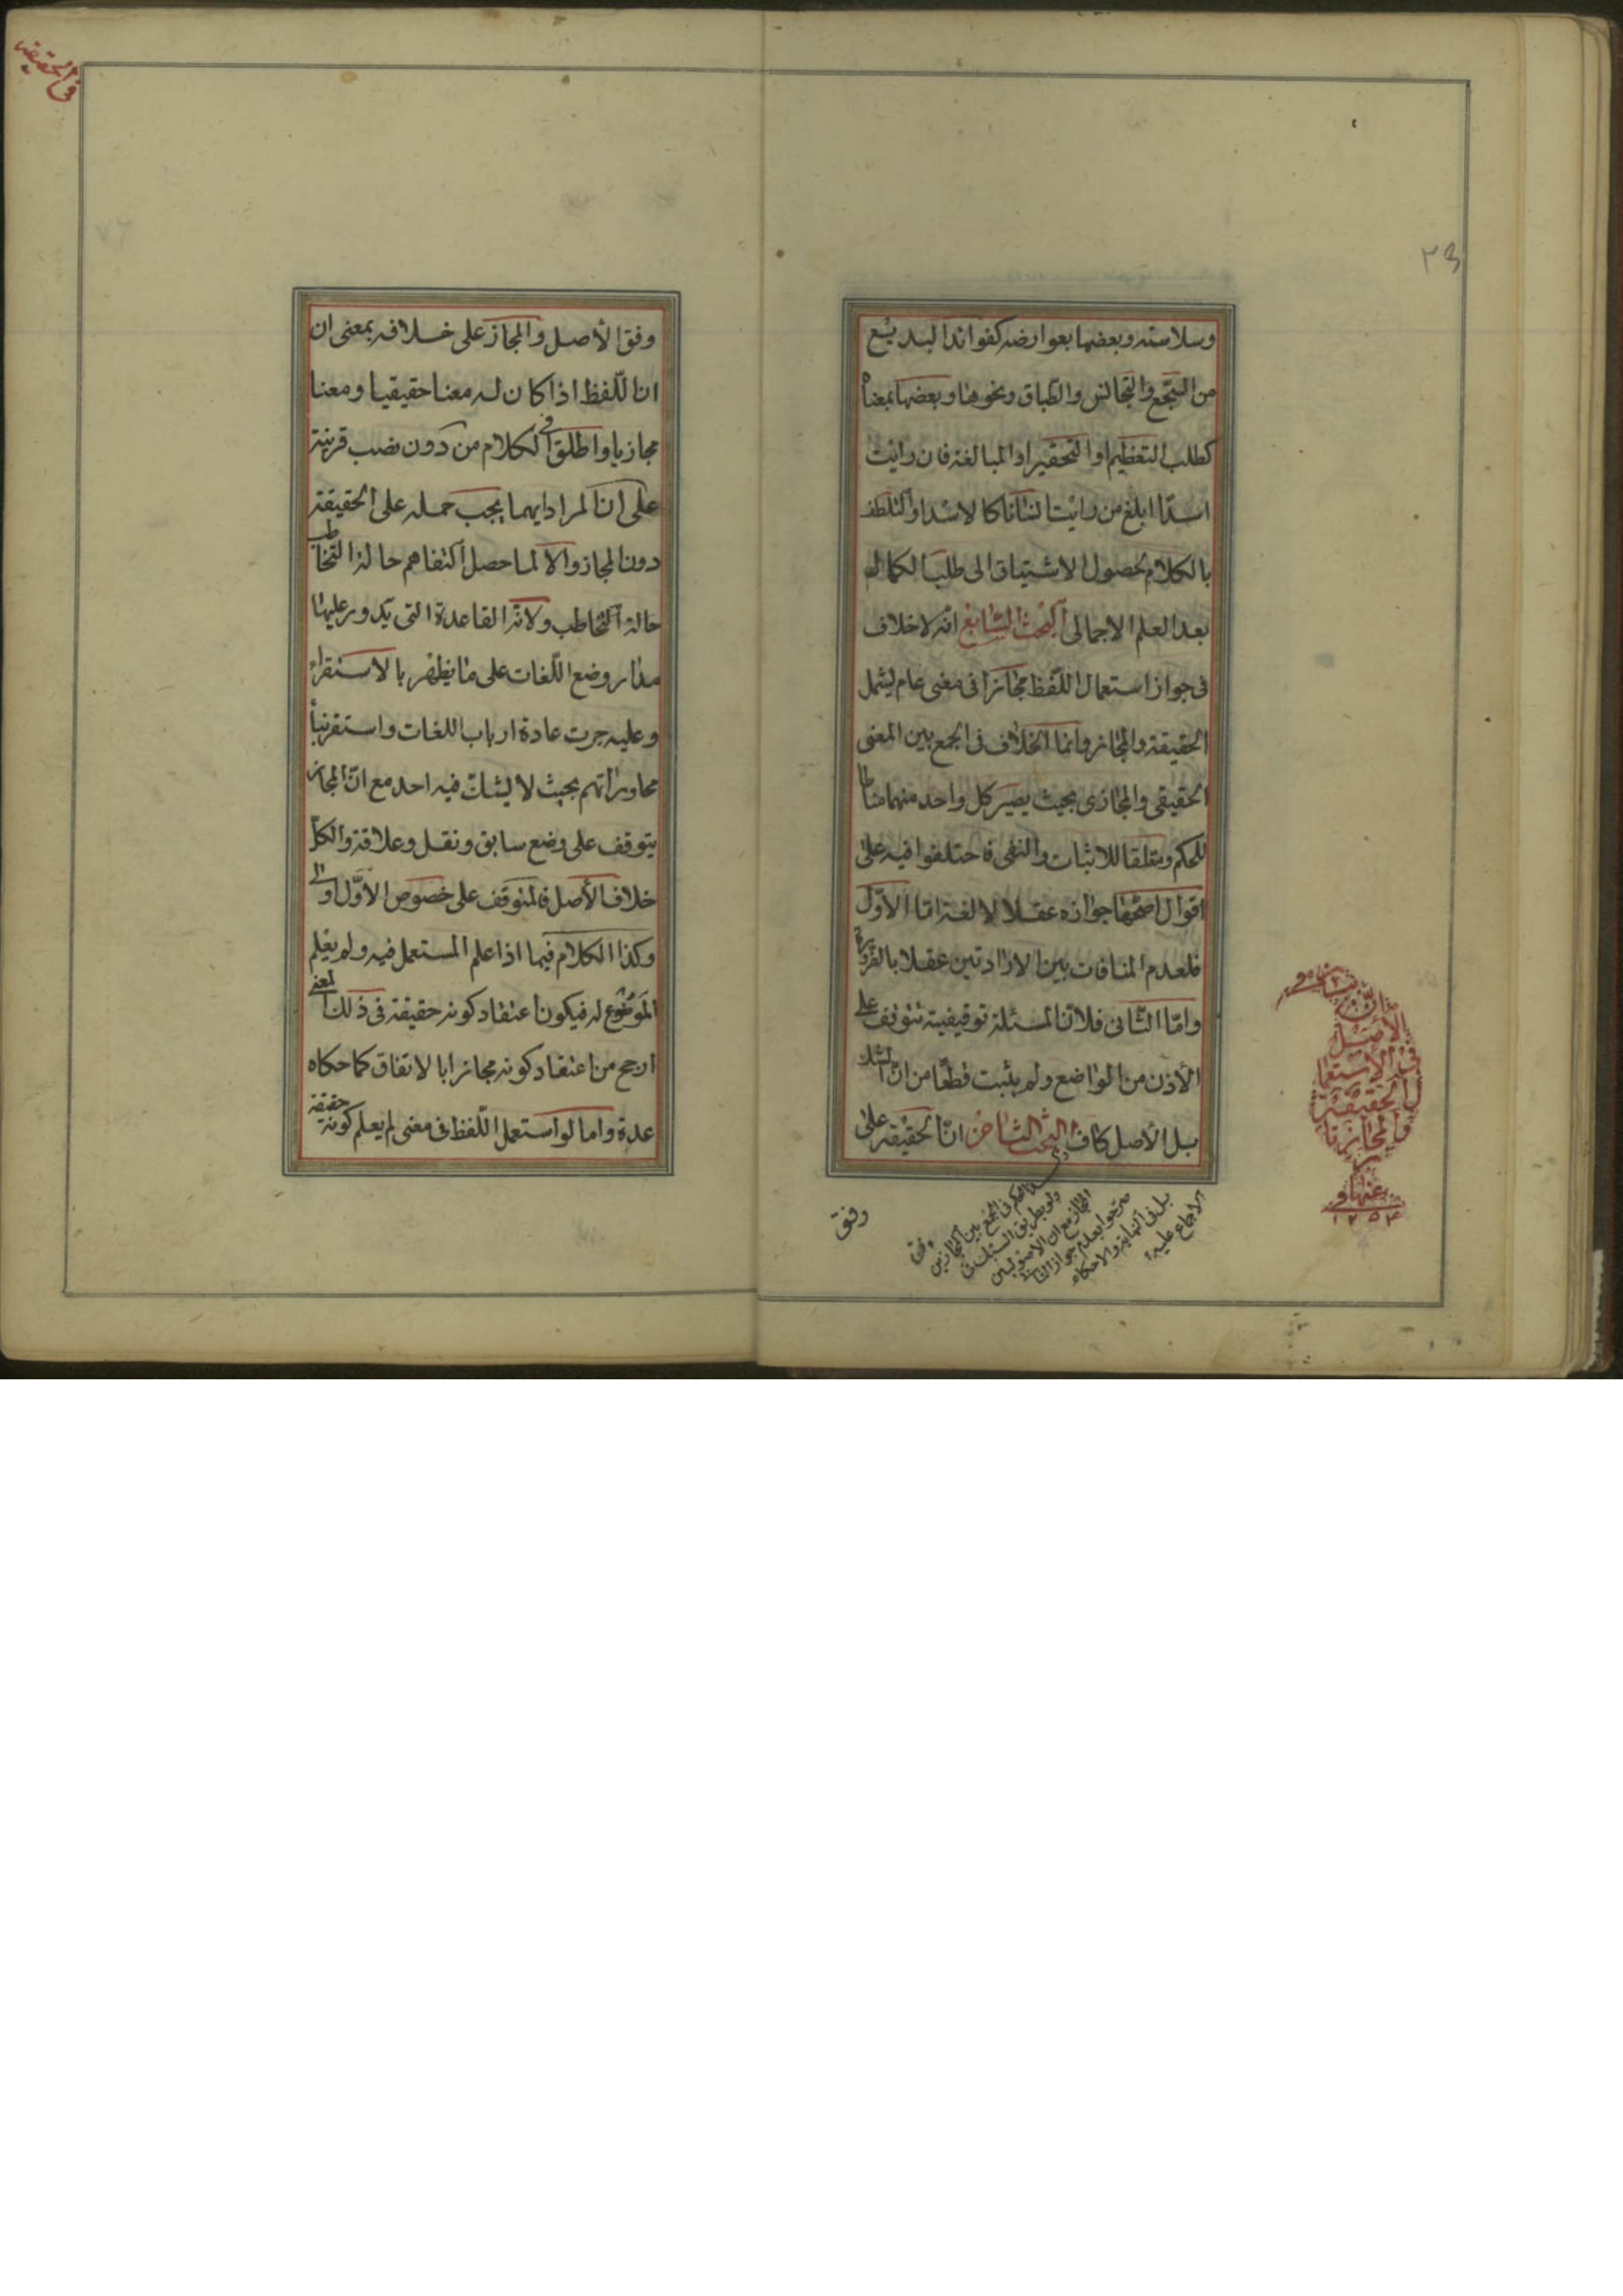 وسلاسته وبعضها بعوارضه كفوائد البديع
من السّجع والتجانس والطّباق ونحوها وبعضها بمعناه
كطلب التعظيم او التحقير او المبالغة فان رايت
اسدا ابلغ من رايت انسانا كالاسد او التلطف
بالكلام لحصول الاشتياق الى طلب الكمال
بعد العلم الاجمالى البحث السّابع انّه لاخلاف
فى جواز استعمال اللّفظ مجازا فى معنى عام ليشمل
الحقيقة والمجاز وانما الخلاف فى الجمع بين المعنى
الحقيقى والمجازى بحيث يصير كل واحد منهما مناطا
للحكم ومتعلقا للاثبات والنفى فاختلفوا فيه على
اقوال اصحّها جوازه عقلا لا لغة امّا الاوّل
فلعدم المنافات بين الارادتين عقلا بالضرورة
وامّا الثّانى فلانّ المسئلة توقيفية تتوقف على
الاذن من الواضع ولم يثبت قطعا من انّ الشك
بل الأصل كاف البحث الثامن انّ الحقيقة على
الحكم فى الجمع بين المجازين
ولو بطريق
المجاز مع ان الاصوليين
صرحوا بعدم جواز
بل فى النهاية والاحكام
الاجماع عليه
وفق
فى انّ
الأصل
فى الاستعمال
الحقيقة
والمجاز
۱۲۵۴
۲۳
فى الحقيقة
۷۶
وفق الأصل والمجاز على خلافه بمعنى ان
انا للّفظ اذا كان له معنا حقيقيا ومعنا
مجازيا واطلق فى الكلام من دون نصب قرينة
على ان المراد ايهما يجب حمله على الحقيقة
دون المجاز والا لما حصل التفاهم حالة التّخاطب
حالة التّخاطب ولانّه القاعدة التى يدور عليها
مدار وضع اللّغات على ما يظهر بالاستقراء
وعليه جرت عادة ارباب اللغات واستقرئنا
محاوراتهم بحيث لايشكّ فيه احد مع انّ المجاز
يتوقف على وضع سابق ونقل وعلاقة والكلّ
خلاف الأصل فالمتوقف على خصوص الأوّل اولى
وكذا الكلام فيما اذا علم المستعمل فيه ولم يعلم
الموضوع له فيكون اعتقاد كونه حقيقة فى ذلك المعنى
ارجح من اعتقاد كونه مجازا بالاتفاق كما حكاه
عدة واما لو استعمل اللّفظ فى معنى لم يعلم كونه حقيقة